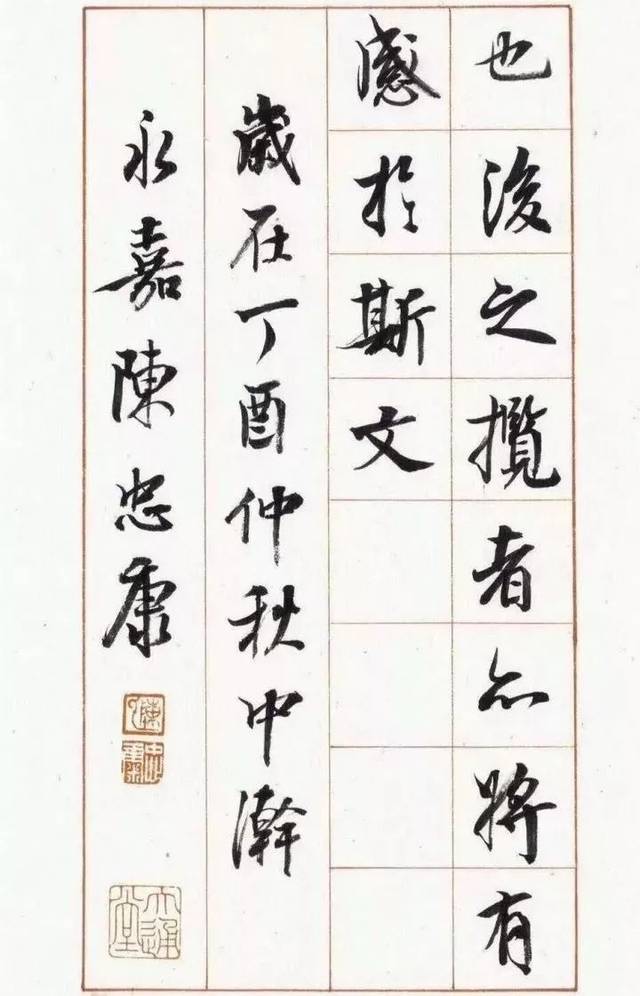 也後之攬者亦將有
感於斯文
歲在丁酉仲秋中澣
永嘉陳忠康
忠康